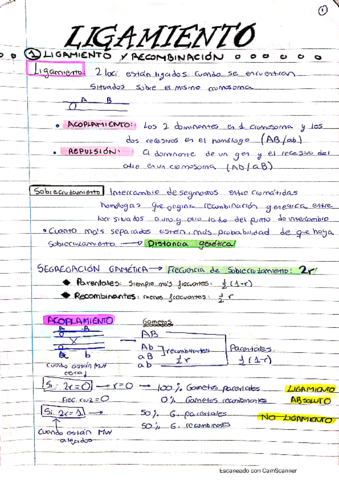 1
LIGAMIENTO
1 LIGAMIENTO Y RECOMBINACIÓN
Ligamiento: 2 loci están ligados cuando se encuentran
situados sobre el mismo cromosoma
A B
• ACOPLAMIENTO: Los 2 dominantes en 1 cromosoma y los
dos recesivos en el homólogo (AB/ab)
• REPULSIÓN: El dominante de un gen y el recesivo del
otro en un cromosoma (Ab/aB)
Sobrecruzamiento Intercambio de segmentos entre cromátidas
homólogas que origina recombinación genética entre
loci situados a uno y otro lado del punto de intercambio
• Cuanto más separados estén, más probabilidad de que haya
sobrecruzamiento → Distancia genética!
SEGREGACIÓN GAMÉTICA → Frecuencia de Sobrecruzamiento: 2r
◆ Parentales: siempre más frecuentes: 1/2 (1-r)
◆ Recombinantes: menos frecuentes: 1/2 r
ACOPLAMIENTO
Gametos
AB
Ab
aB
ab
recombinantes
1/2 r
Parentales
1/2 (1-r)
cuando están muy
cerca
Si: 2r=0 → r=0 → 100% Gametos parentales LIGAMIENTO
0% Gametos recombinantes ABSOLUTO
Si: 2r=1 → 50% G. parentales NO LIGAMIENTO
50% G. recombinants
cuando están muy
alejados
Escaneado con CamScanner